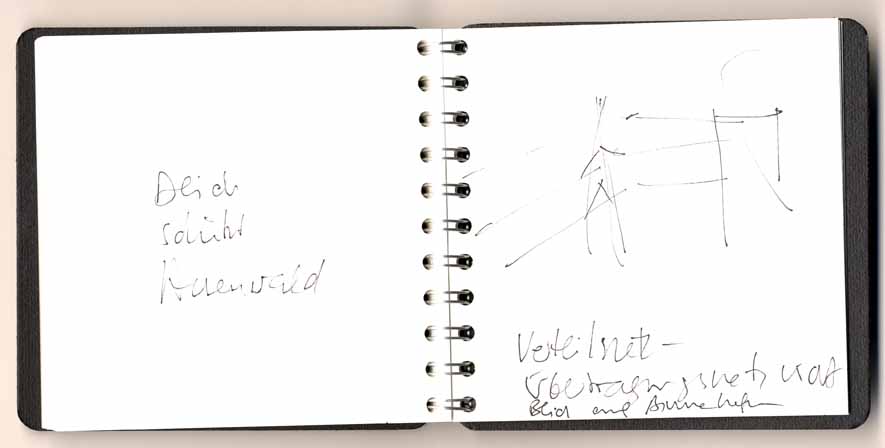 Deich
schützt
Auenwald
Verteilnetz-
Übertragungsnetz
Blick auf